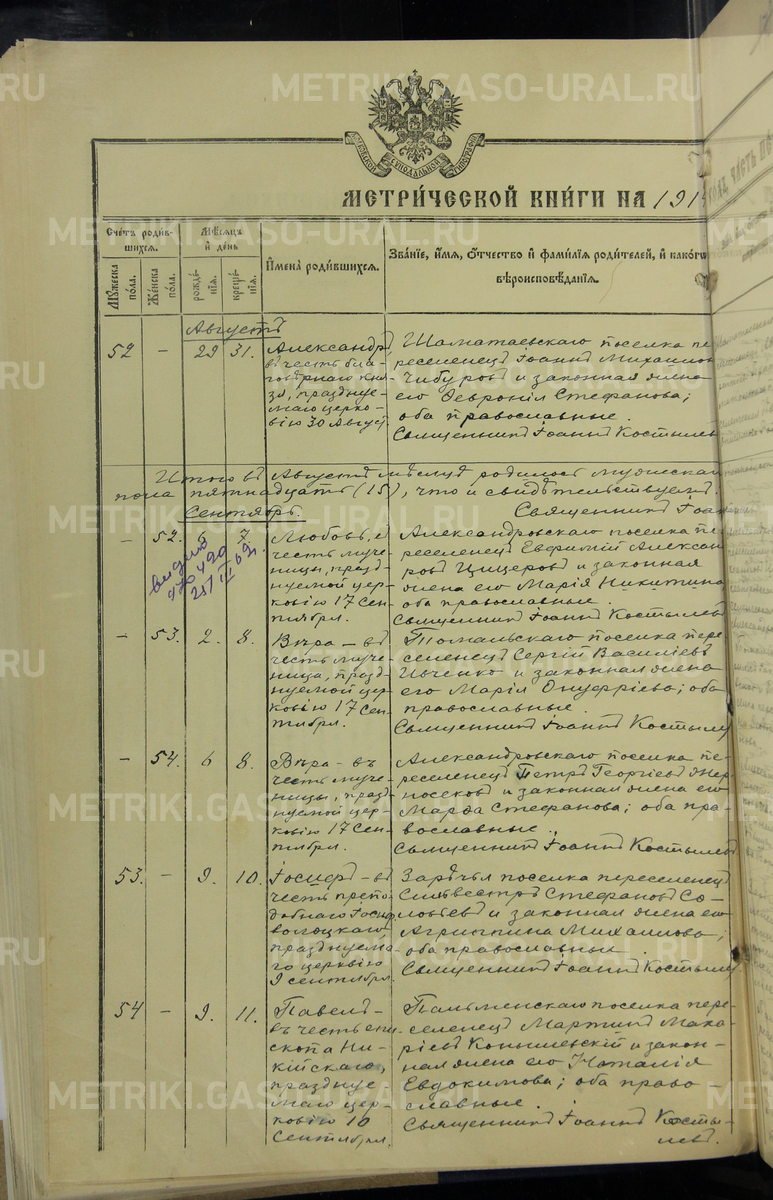 МЕТРИ́ЧЕСКОЙ КНИ́ГИ НА 191
Счетъ роди́в-
шихся.
Мѣ́сяцъ
и́ день
И҆мена̀ роди́вшихся.
Зва́нїе, и҆́мя, ѻ҆́тчество и҆ фами́лїя роди́телей, и҆ како́гѡ
вѣроисповѣ́данїя.
Му́жеска
по́ла.
Же́нска
по́ла.
рожде́-
нїя.
креще́-
нїя.
Августъ
52
–
29
31.
Александръ,
въ честь бла-
говѣрнаго кня-
зя, празднуе-
маго церко-
вію 30 Август.
Шаматаевскаго поселка пе-
реселенецъ Іоаннъ Михаилов
Чибуровъ и законная жена
его Февронія Стефанова;
оба православные.
Священникъ Іоаннъ Костылев
Итого въ Августѣ мѣсяцѣ родилось мужеска
пола пятнадцать (15), что и свидѣтельствуемъ.
Священникъ Іоан
Сентябрь.
–
52.
5
7.
Любовь, въ
честь муче-
ницы, празд-
нуемой цер-
ковію 17 Сен-
тября.
Александровскаго поселка пе-
реселенецъ Евфимій Алексан-
ровъ Цицеровъ и законная
жена его Марія Никитина
оба православные.
Священникъ Іоаннъ Костылевъ
выдано
–
53.
2.
8.
Вѣра – въ
честь муче-
ница, празд-
нуемой цер-
ковью 17 Сен-
тября.
поселка пере-
селенецъ Сергій Василіевъ
Ивченко и законная жена
его Марія Онуфріева; оба
православные.
Священникъ Іоаннъ Костылев
–
54.
6
8.
Вѣра – въ
честь муче-
ницы, празд-
нуемой цер-
ковію 17 Сен-
тября.
Александровскаго поселка пе-
реселенецъ Петръ Георгіевъ Жер-
носековъ и законная жена его
Марѳа Стефанова; оба пра-
вославные.
Священникъ Іоаннъ Костылевъ
53.
–
9.
10.
Іосифъ – въ
честь препо-
добнаго Іосиф.
волоцкаго,
празднуема-
го церквію
9 сентября.
Зарѣчья поселка переселенецъ
Сильвестръ Стефановъ Со-
ловьевъ и законная жена его
Агриппина Михаилова;
оба православные.
Священникъ Іоаннъ Костылев
54
–
9.
11.
Павелъ –
въ честь епи-
скопа Ни-
кійскаго,
празднуе-
маго цер-
ковію 10
Сентября.
поселка пере-
селенецъ Мартинъ Мака-
ріевъ Конышевскій и закон-
ная жена его Наталія
Евдокимова; оба право-
славные.
Священникъ Іоаннъ Косты-
левъ.
METRIKI.GASO-URAL.RU